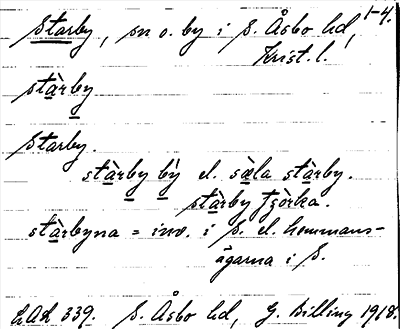 1-4.
Starby, sn o. by i S. Åsbo hd,
Krist. l.
stàrby
Starby.
stàrby bý el. sæ̀la stàrby.
stàrby tjòrka.
stàrbyna = inv. i S. el. hemmans-
ägarna i S.
LAL 339. S. Åsbo hd, G. Billing 1918.